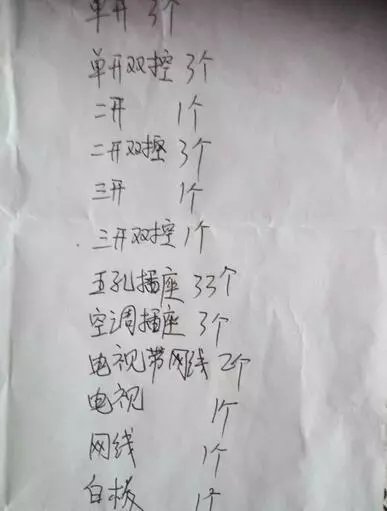 单开 3个
单开双控 3个
二开 1个
二开双控 3个
三开 1个
三开双控 1个
五孔插座 33个
空调插座 3个
电视带网线 2个
电视 1个
网线 1个
白板 1个